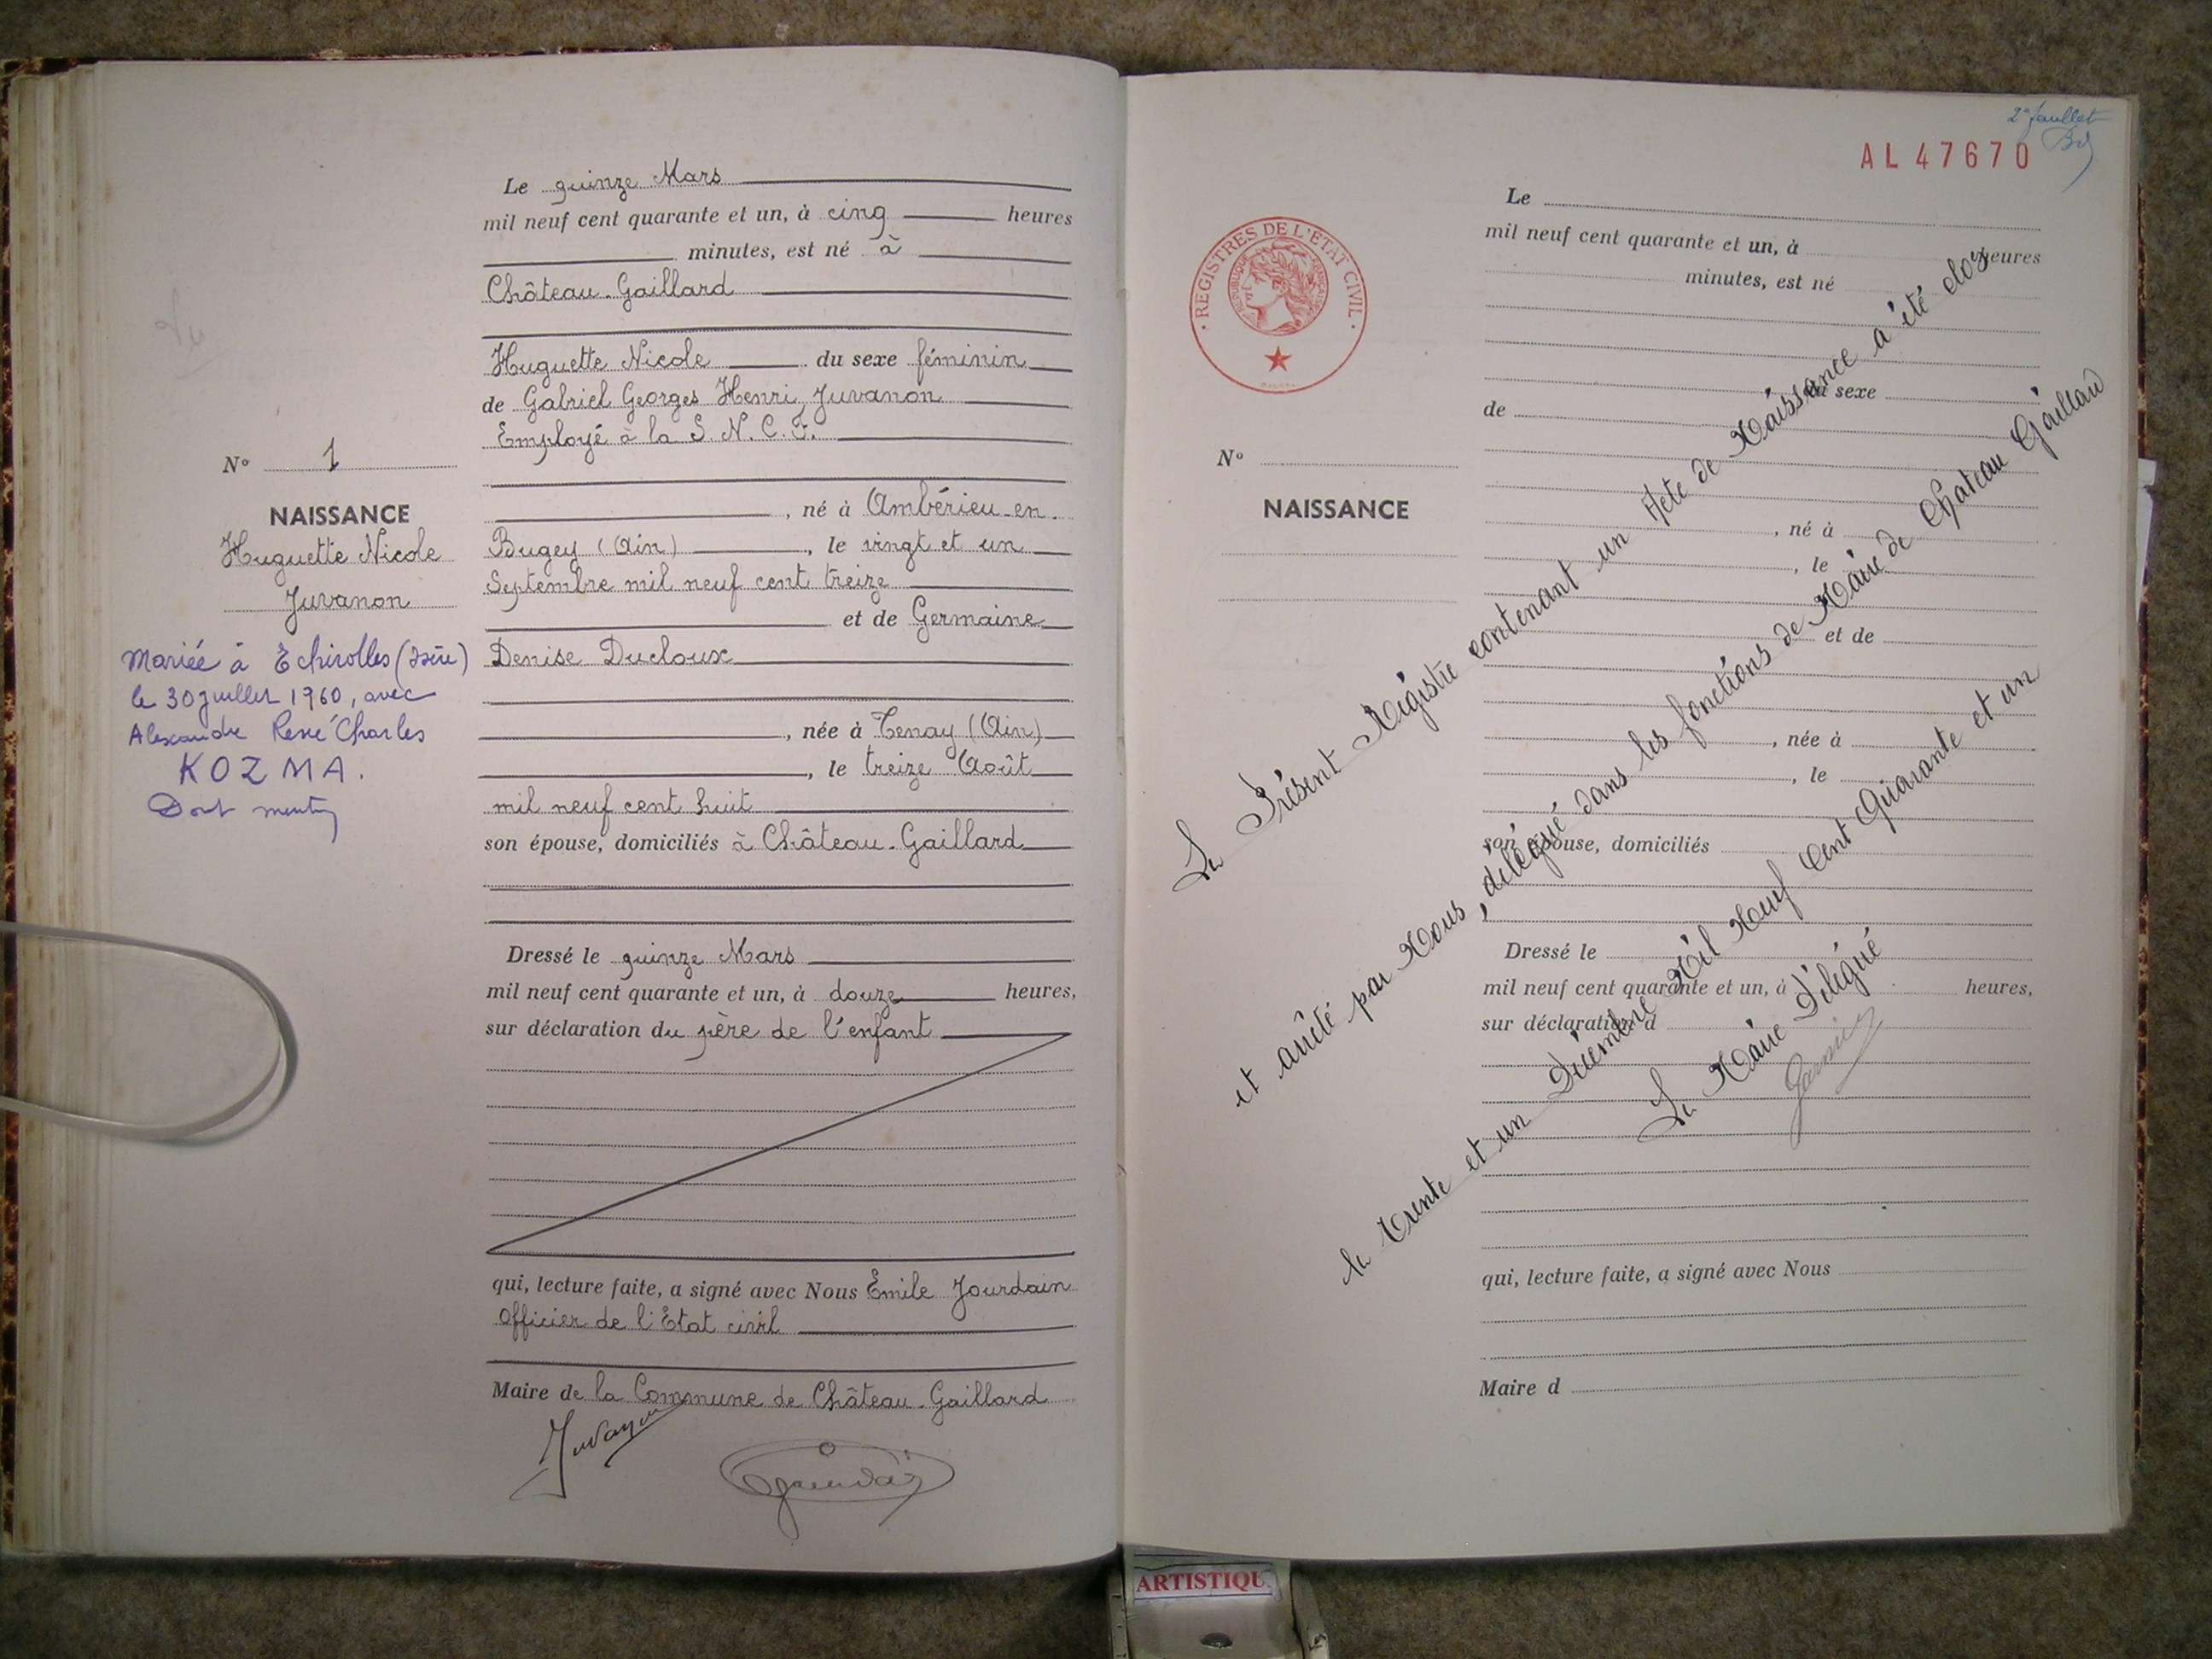 Le quinze Mars
mil neuf cent quarante et un, à cinq heures
minutes, est né à
Château-Gaillard
Huguette Nicole du sexe féminin
de Gabriel Georges Henri Juvanon
Employé à la S.N.C.F.
N° 1
NAISSANCE
Huguette Nicole
Juvanon
Mariée à Echirolles (Isère)
le 30 juillet 1960, avec
Alexandre René Charles
KOZMA.
Dont mention
, né à Ambérieu-en-
Bugey (Ain), le vingt et un
Septembre mil neuf cent treize
et de Germaine
Denise Ducloux
, née à Tenay (Ain)
, le treize Août
mil neuf cent huit
son épouse, domiciliés à Château-Gaillard
Dressé le quinze Mars
mil neuf cent quarante et un, à douze heures,
sur déclaration du père de l'enfant
qui, lecture faite, a signé avec Nous Emile Jourdain
Officier de l'Etat civil
Maire de la Commune de Château-Gaillard
Juvanon
2e feuillet
AL 47670
REGISTRES DE L'ETAT CIVIL
REPUBLIQUE FRANCAISE
Le
mil neuf cent quarante et un, à heures
minutes, est né
du sexe
de
N°
NAISSANCE
, né à
, le
et de
, née à
, le
son épouse, domiciliés
Dressé le
mil neuf cent quarante et un, à heures,
sur déclaration d
qui, lecture faite, a signé avec Nous
Maire d
Le Présent Régistre contenant un Acte de Naissance a été clos
et arrêté par Nous, délégué dans les fonctions de Maire de Chateau Gaillard
le Trente et un Décembre Mil Neuf Cent Quarante et un
Le Maire Délégué
ARTISTIQU